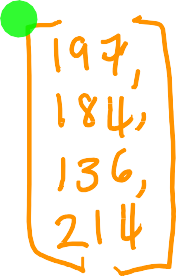 [197,
184,
136,
214]